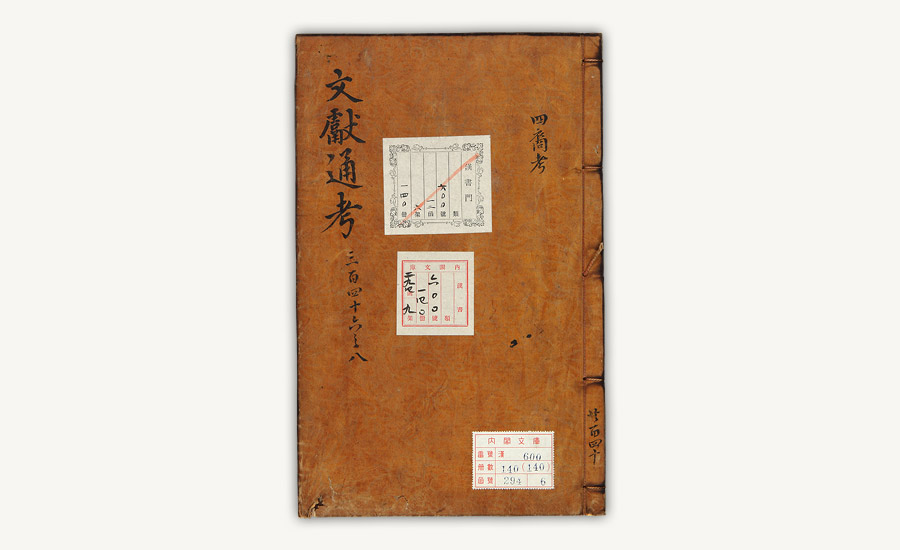 文獻通考
三百四十六之八
四裔考
漢書門
類
六〇〇號
函
架
一四〇冊
內閣文庫
漢書
類
六〇〇號
一四〇冊
九架
共百四十
內閣文庫
番號 漢 600
冊數 140(140)
函號 294 6